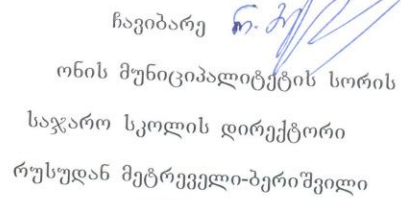 ჩავიბარე
ონის მუნიციპალიტეტის სორის
საჯარო სკოლის დირექტორი
რუსუდან მეტრეველი-ბერიშვილი